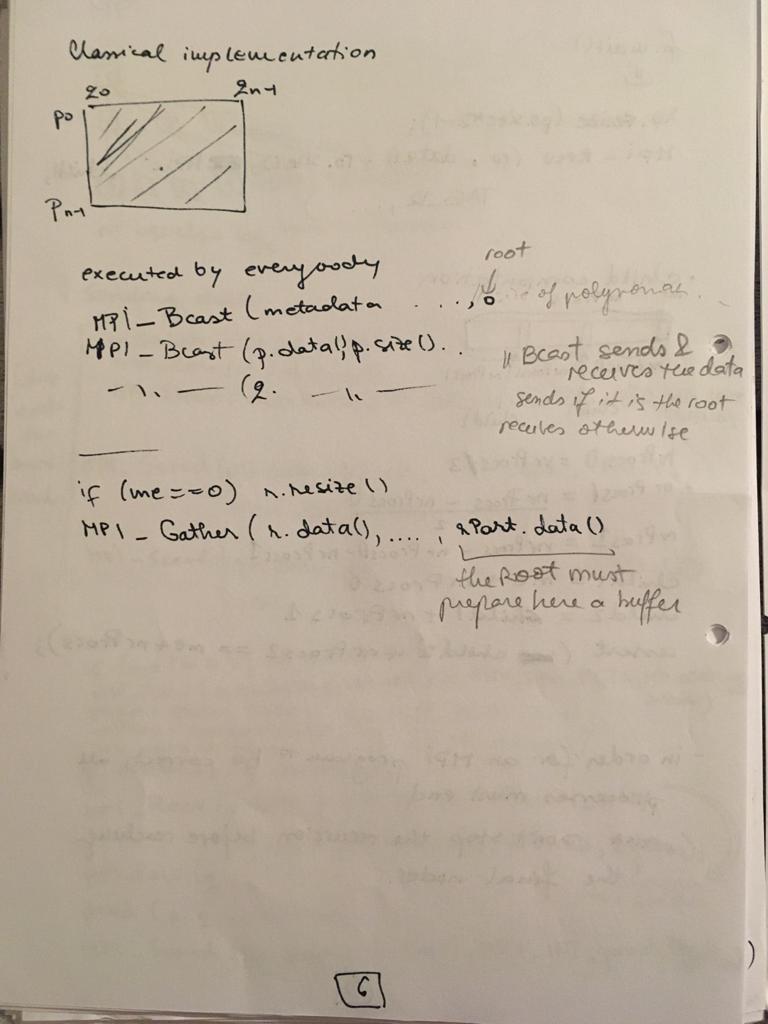 Classical implementation
q0 qn-1
p0
pn-1
executed by everybody
root
MPI_Bcast (metadata ...., 0 of polynomial.
MPI_Bcast (p.data(), p.size()..
// Bcast sends & receives the data
sends if it is the root
receives otherwise
— 11. — (q. — 11. —
if (me==0) r.resize()
MPI_Gather (r.data(), ...., rPart.data()
the root must
prepare here a buffer
6